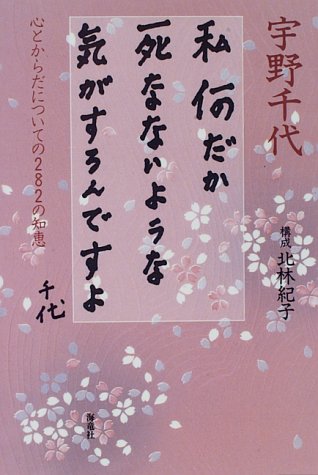 宇野千代
構成 北林紀子
私何だか
死なないような
気がするんですよ
千代
心とからだについての282の知恵
海竜社